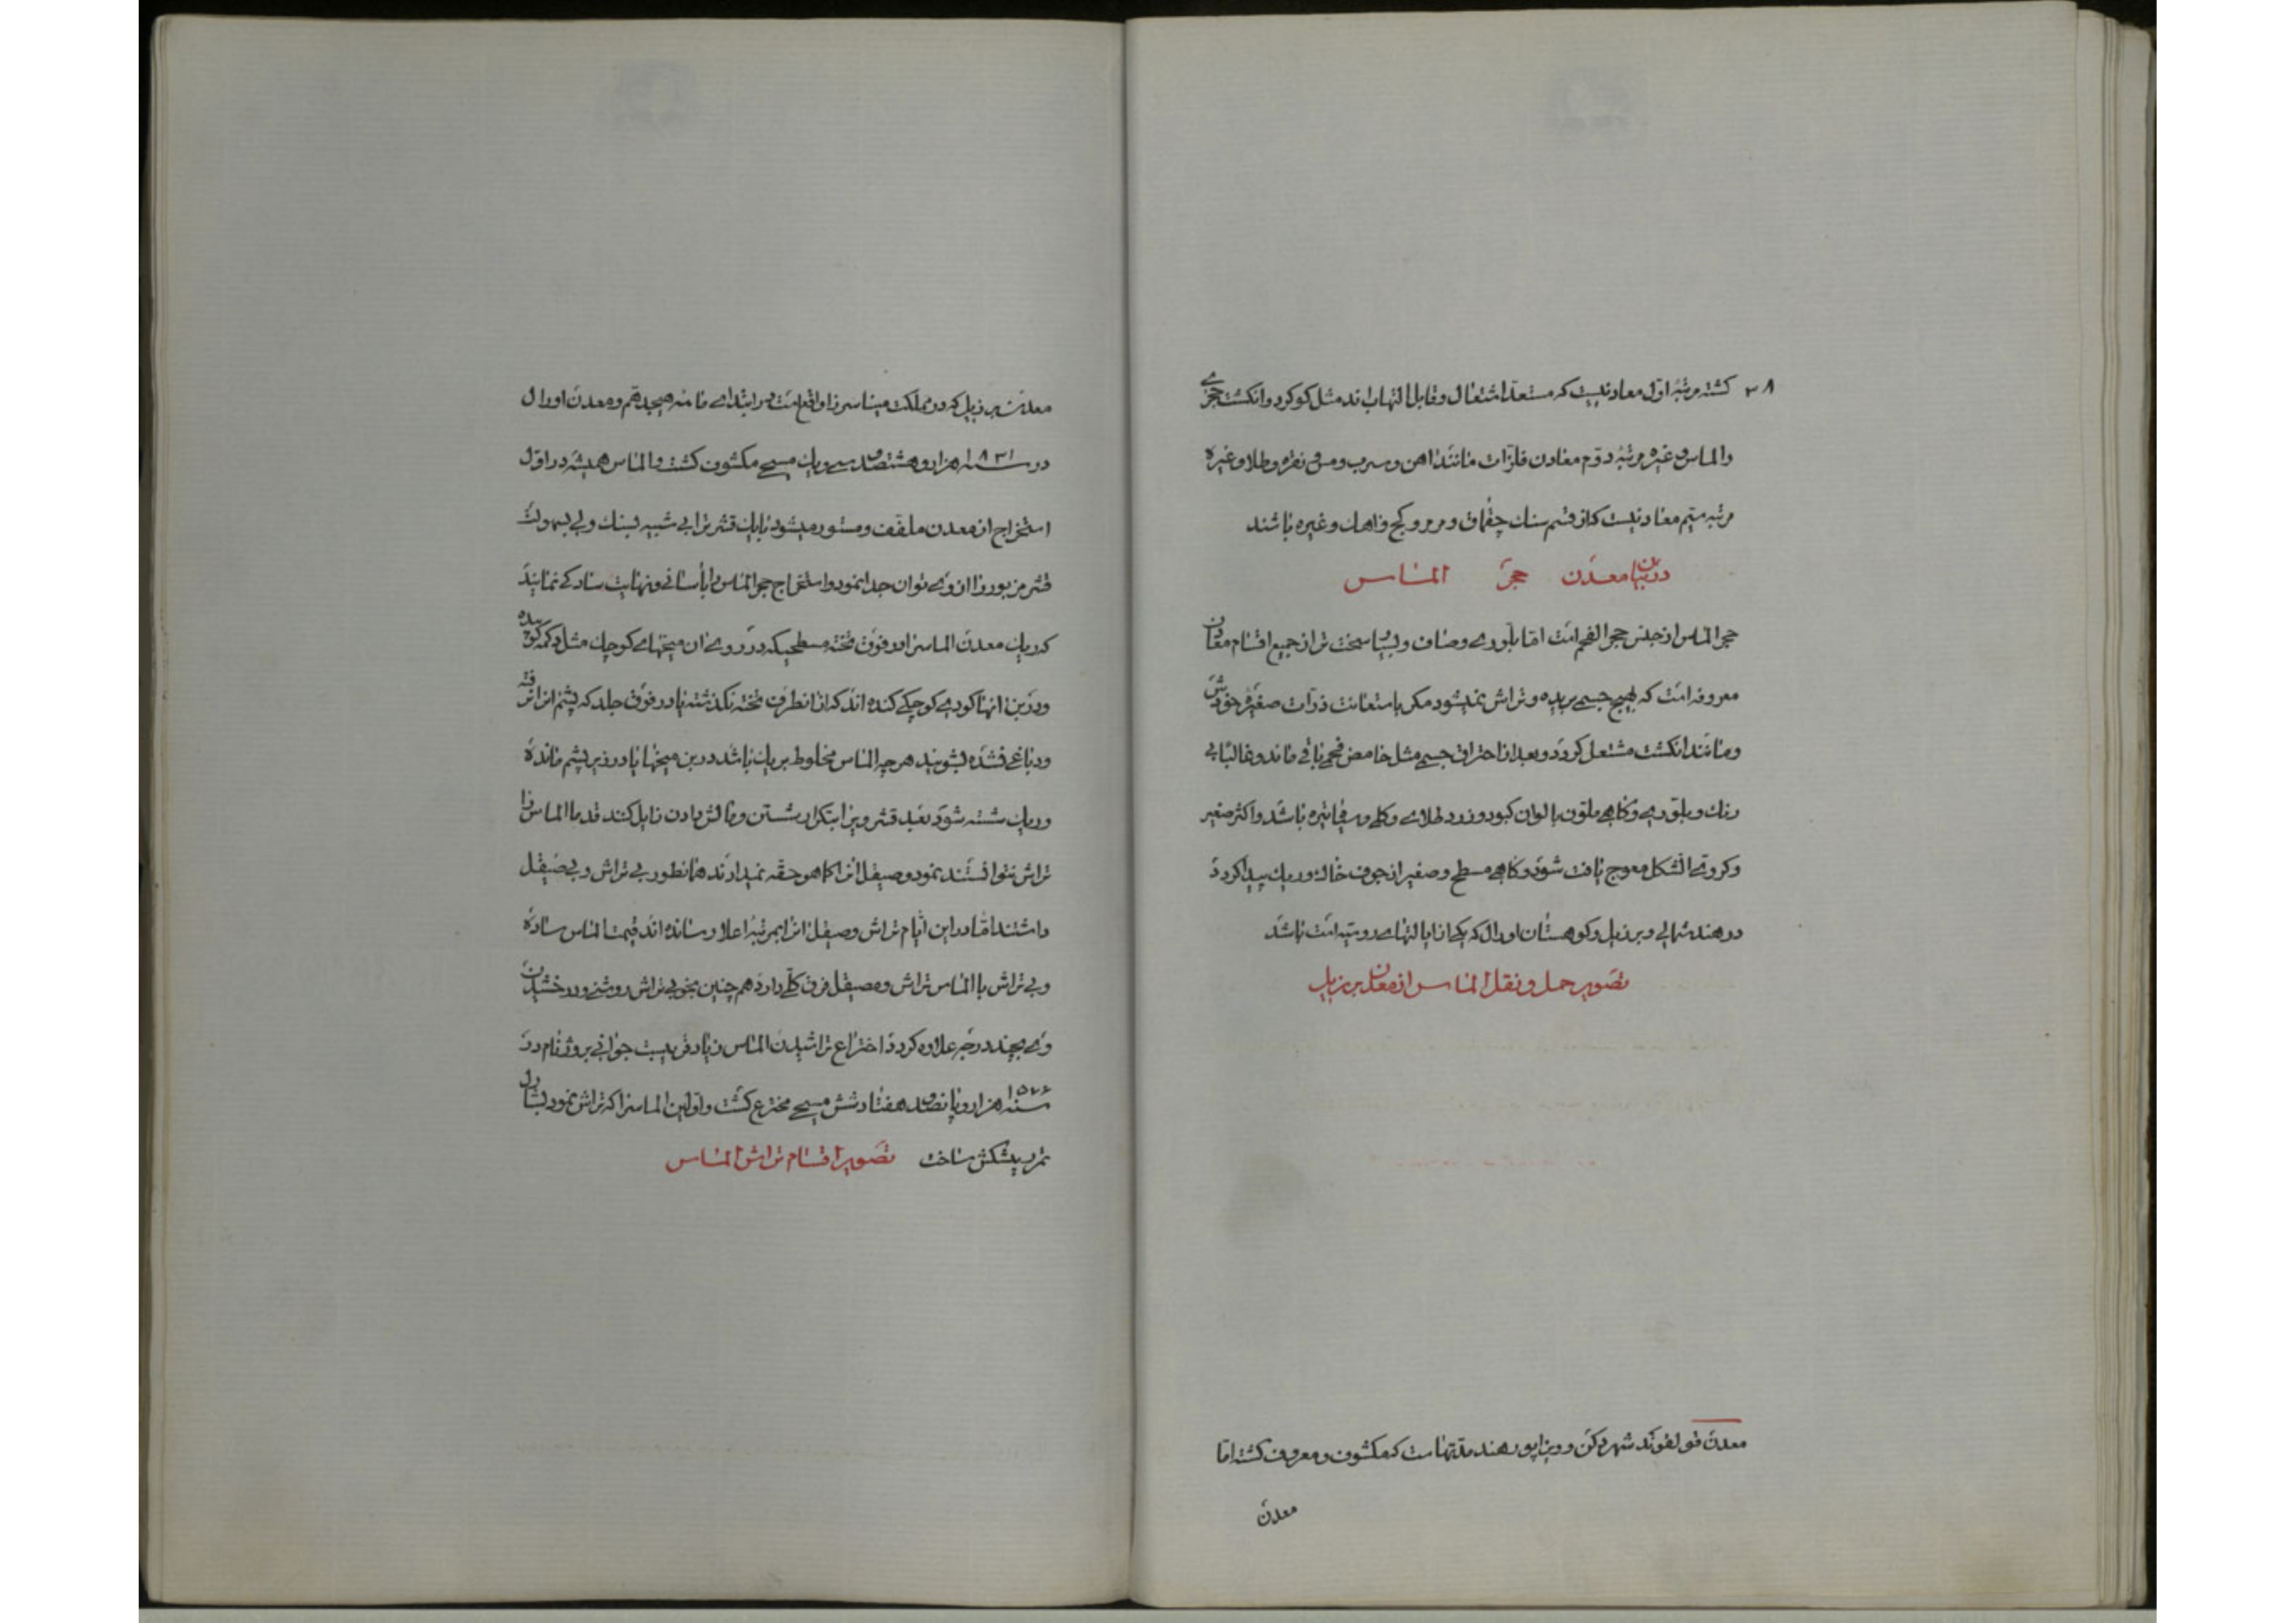 ۳۸ کشته مرتبهٔ اوّل معادنیست که مستعدّ اشتعال و قابل التهاب اند مثل کوکرد و انکشت حجری
و الماس و غیره مرتبهٔ دوّم معادن فلزّات مانند اهن و سرب و مس و نقره و طلا و غیره
مرتبه سیّم معادنیست که از قسم سنك چقماق و مرمر و کچ و اهك و غیره باشند
در بیان معدن حجر الماس
حجر الماس از جنس حجر الفحم است امّا بلّوری و صاف و بسیار سخت تر از جمیع اقسام معادن
معروفه است که بهیچ جسمی بریده و تراش نمیشود مکر باستعانت ذرّات صغیره خودش
و مانند انکشت مشتعل کردد و بعد از احتراق جسمی مثل حامض فحمی باقی ماند و غالبًا بی
رنك و بلّوری و کاهی ملوّن بالوان کبود و زرد طلائی و کلی و سفید تیره باشد و اکثر صغیر
و کروی الشکل معوج یافت شود و کاهی مسطح و صغیر از جوف خاك و ریك پیدا کردد
در هند شمالی و برزیل و کوهستان اورال که یکی از ایالتهای روسیه است باشد
تصویر حمل و نقل الماس از معدن برزیل
معدن شهر دکن و ویزاپور هند مدّتهاست که مکشوف و معروف کشته امّا
معدن
معدن برزیل که در مملکت میناسرزا واقع است در ابتدای مائه هیجدهم و معدن اورال
در سنه ۱۸۳۱ هزار و هشتصد سی و یك مسیحی مکشوف کشت و الماس همیشه در اوّل
استخراج از معدن ملفّف و مستور میشود با یك قشر ترابی شبیه بسنك ولی بسهولت
قشر مزبور را از وی توان جدا نمود و استخراج حجر الماس را بآسانی و نهایت سادکی نمایند
که ریك معدن الماس را در فوق تخته مسطحیکه در روی ان میخهای کوچك مثل دکمه کوبیده
و در بن انها کودی کوچکی کنده اند که از انطرف تخته نکذشته یا در فوق جلد که پشم انرا نرفته
و دباغی نشده بشویند هرچه الماس مخلوط بریك باشد در بن میخها یا در زیر پشم مانده
و ریك شسته شود بعد قشر ویرا بتکرار شستن و مالش دادن زایل کنند قدما الماس را
تراش نتوانستند نمود و صیقل انرا کما هو حقّه نمیدادند همانطور بی تراش و بی صیقل
داشتند امّا در این ایّام تراش و صیقل انرا بمرتبهٔ اعلا رسانده اند قیمت الماس ساده
و بی تراش با الماس تراش و صیقل فرق کلّی دارد همچنین بخوبی تراش روشنی و درخشیدن
وی بچند درجه علاوه کردد اختراع تراشیدن الماس زیاد جوانی بروژ نام در
سنه ۱۵۷۶ هزار و پانصد هفتاد شش مسیحی مخترع کشت و اوّلین الماس را که تراش نمود بشارل
تمرر پیشکش ساخت تصویر اقسام تراش الماس